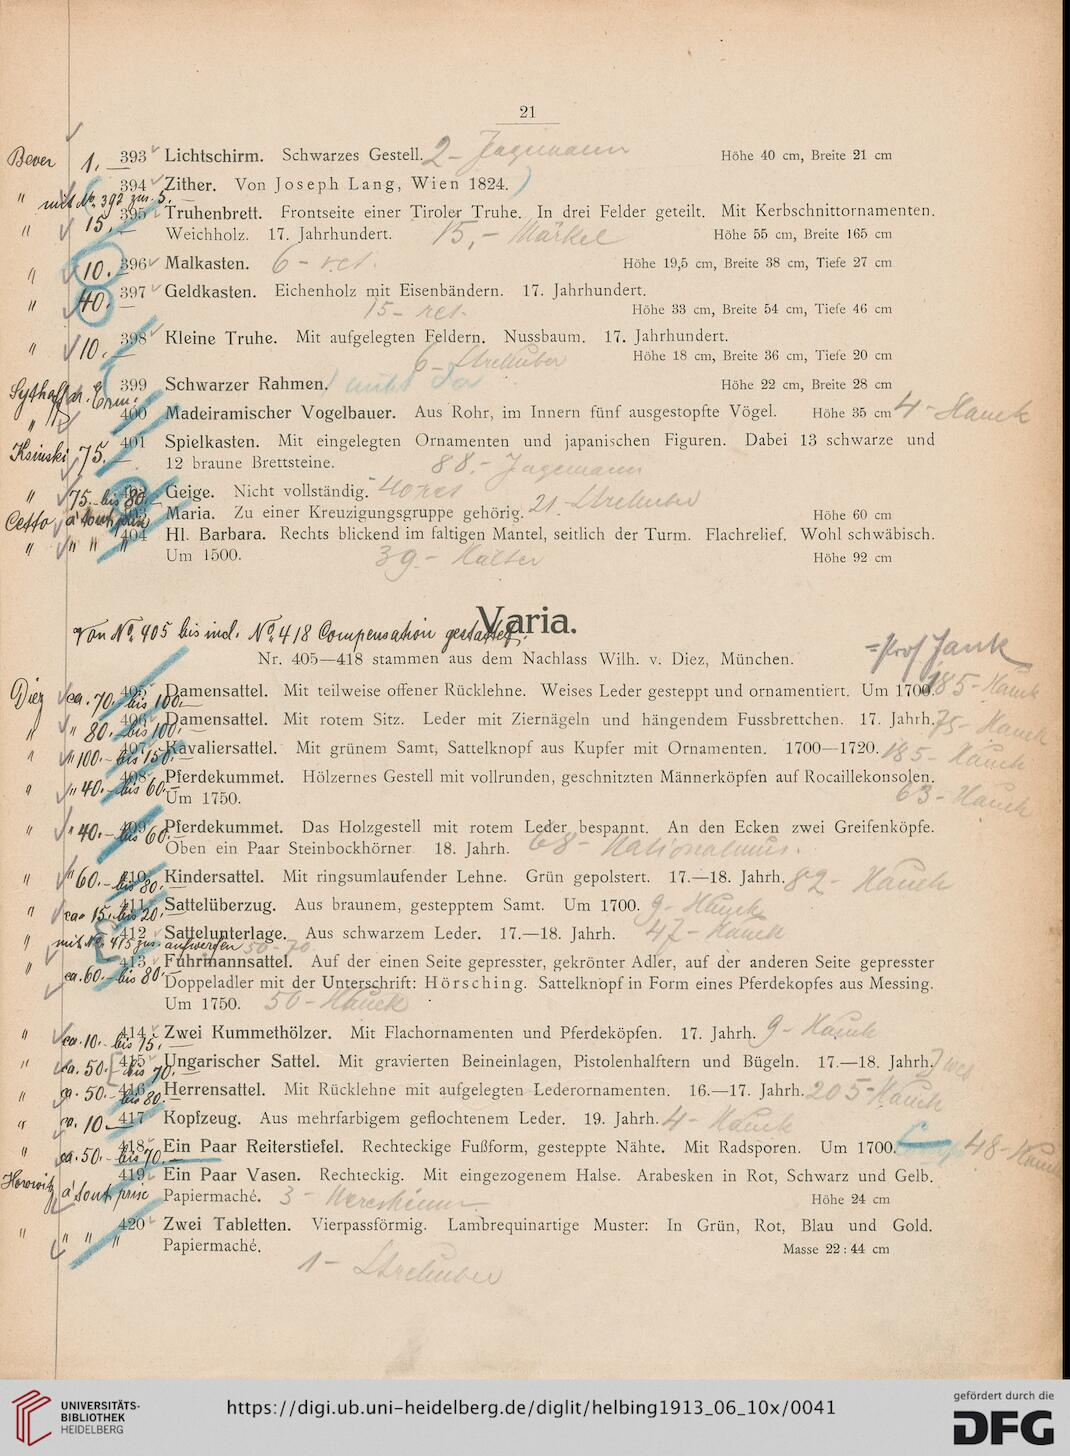 21
Bever 1.— 393 Lichtschirm. Schwarzes Gestell. 2- Jagemann Höhe 40 cm, Breite 21 cm
394 Zither. Von Joseph Lang, Wien 1824.
" mit No. 392 zus. 5.—
" 15.— 395 Truhenbrett. Frontseite einer Tiroler Truhe. In drei Felder geteilt. Mit Kerbschnittornamenten.
Weichholz. 17. Jahrhundert. 15,- Märkel Höhe 55 cm, Breite 165 cm
" 10.— 396 Malkasten. 6- ret. Höhe 19,5 cm, Breite 38 cm, Tiefe 27 cm
" 40.— 397 Geldkasten. Eichenholz mit Eisenbändern. 17. Jahrhundert.
15- ret. Höhe 33 cm, Breite 54 cm, Tiefe 46 cm
" 10.— 398 Kleine Truhe. Mit aufgelegten Feldern. Nussbaum. 17. Jahrhundert.
6- Strehuber Höhe 18 cm, Breite 36 cm, Tiefe 20 cm
399 Schwarzer Rahmen. nicht da Höhe 22 cm, Breite 28 cm
" 400 Madeiramischer Vogelbauer. Aus Rohr, im Innern fünf ausgestopfte Vögel. Höhe 35 cm 4- Hauck
75.— 401 Spielkasten. Mit eingelegten Ornamenten und japanischen Figuren. Dabei 13 schwarze und
12 braune Brettsteine. 88.- Jagemann
" 75.- bis 80.— Geige. Nicht vollständig. 40 ret
Cetto à tout prix Maria. Zu einer Kreuzigungsgruppe gehörig. 21- Strehuber Höhe 60 cm
" " " " 404 Hl. Barbara. Rechts blickend im faltigen Mantel, seitlich der Turm. Flachrelief. Wohl schwäbisch.
Um 1500. 39.- Höhe 92 cm
Varia.
Von No. 405 bis incl. No. 418 Compensation gestattet.
Nr. 405—418 stammen aus dem Nachlass Wilh. v. Diez, München. = Prof Jank
Diez ca. 70.- bis 100.— 405 Damensattel. Mit teilweise offener Rücklehne. Weises Leder gesteppt und ornamentiert. Um 1700. 185- Hauck
" " 80.- bis 100.— 406 Damensattel. Mit rotem Sitz. Leder mit Ziernägeln und hängendem Fussbrettchen. 17. Jahrh. 75- Hauck
" " 100.- bis 150.— 407 Kavaliersattel. Mit grünem Samt, Sattelknopf aus Kupfer mit Ornamenten. 1700—1720. 185- Hauck
" " 40.- bis 60.— 408 Pferdekummet. Hölzernes Gestell mit vollrunden, geschnitzten Männerköpfen auf Rocaillekonsolen.
Um 1750. 63- Hauck
" " 40.- bis 60.— 409 Pferdekummet. Das Holzgestell mit rotem Leder bespannt. An den Ecken zwei Greifenköpfe.
Oben ein Paar Steinbockhörner. 18. Jahrh. 68- Nationalmus.
" " 60.- bis 80.— 410 Kindersattel. Mit ringsumlaufender Lehne. Grün gepolstert. 17.—18. Jahrh. 82- Hauck
" ca. 15.- bis 20.— 411 Sattelüberzug. Aus braunem, gestepptem Samt. Um 1700. 9- Hauck
412 Sattelunterlage. Aus schwarzem Leder. 17.—18. Jahrh. 47- Hauck
" mit No. 415 zus. aufwerfen 50-70.
" ca. 60.- bis 80.— 413 Fuhrmannsattel. Auf der einen Seite gepresster, gekrönter Adler, auf der anderen Seite gepresster
Doppeladler mit der Unterschrift: Hörsching. Sattelknopf in Form eines Pferdekopfes aus Messing.
Um 1750. 50- Hauck
" ca. 10.- bis 15.— 414 Zwei Kummethölzer. Mit Flachornamenten und Pferdeköpfen. 17. Jahrh. 9- Hauck
" ca. 50.- bis 70.— 415 Ungarischer Sattel. Mit gravierten Beineinlagen, Pistolenhalftern und Bügeln. 17.—18. Jahrh.
" ca. 50.- bis 80.— 416 Herrensattel. Mit Rücklehne mit aufgelegten Lederornamenten. 16.—17. Jahrh. 205- Hauck
" ca. 10.— 417 Kopfzeug. Aus mehrfarbigem geflochtenem Leder. 19. Jahrh. 4- Hauck
" ca. 50.- bis 70.— 418 Ein Paar Reiterstiefel. Rechteckige Fußform, gesteppte Nähte. Mit Radsporen. Um 1700. 48- Hauck
Horowitz à tout prix 419 Ein Paar Vasen. Rechteckig. Mit eingezogenem Halse. Arabesken in Rot, Schwarz und Gelb.
Papiermaché. 3- Höhe 24 cm
" " " " 420 Zwei Tabletten. Vierpassförmig. Lambrequinartige Muster: In Grün, Rot, Blau und Gold.
Papiermaché. Masse 22 : 44 cm
1- Strehuber
UNIVERSITÄTS-
BIBLIOTHEK
HEIDELBERG
https://digi.ub.uni-heidelberg.de/diglit/helbing1913_06_10x/0041
gefördert durch die
DFG